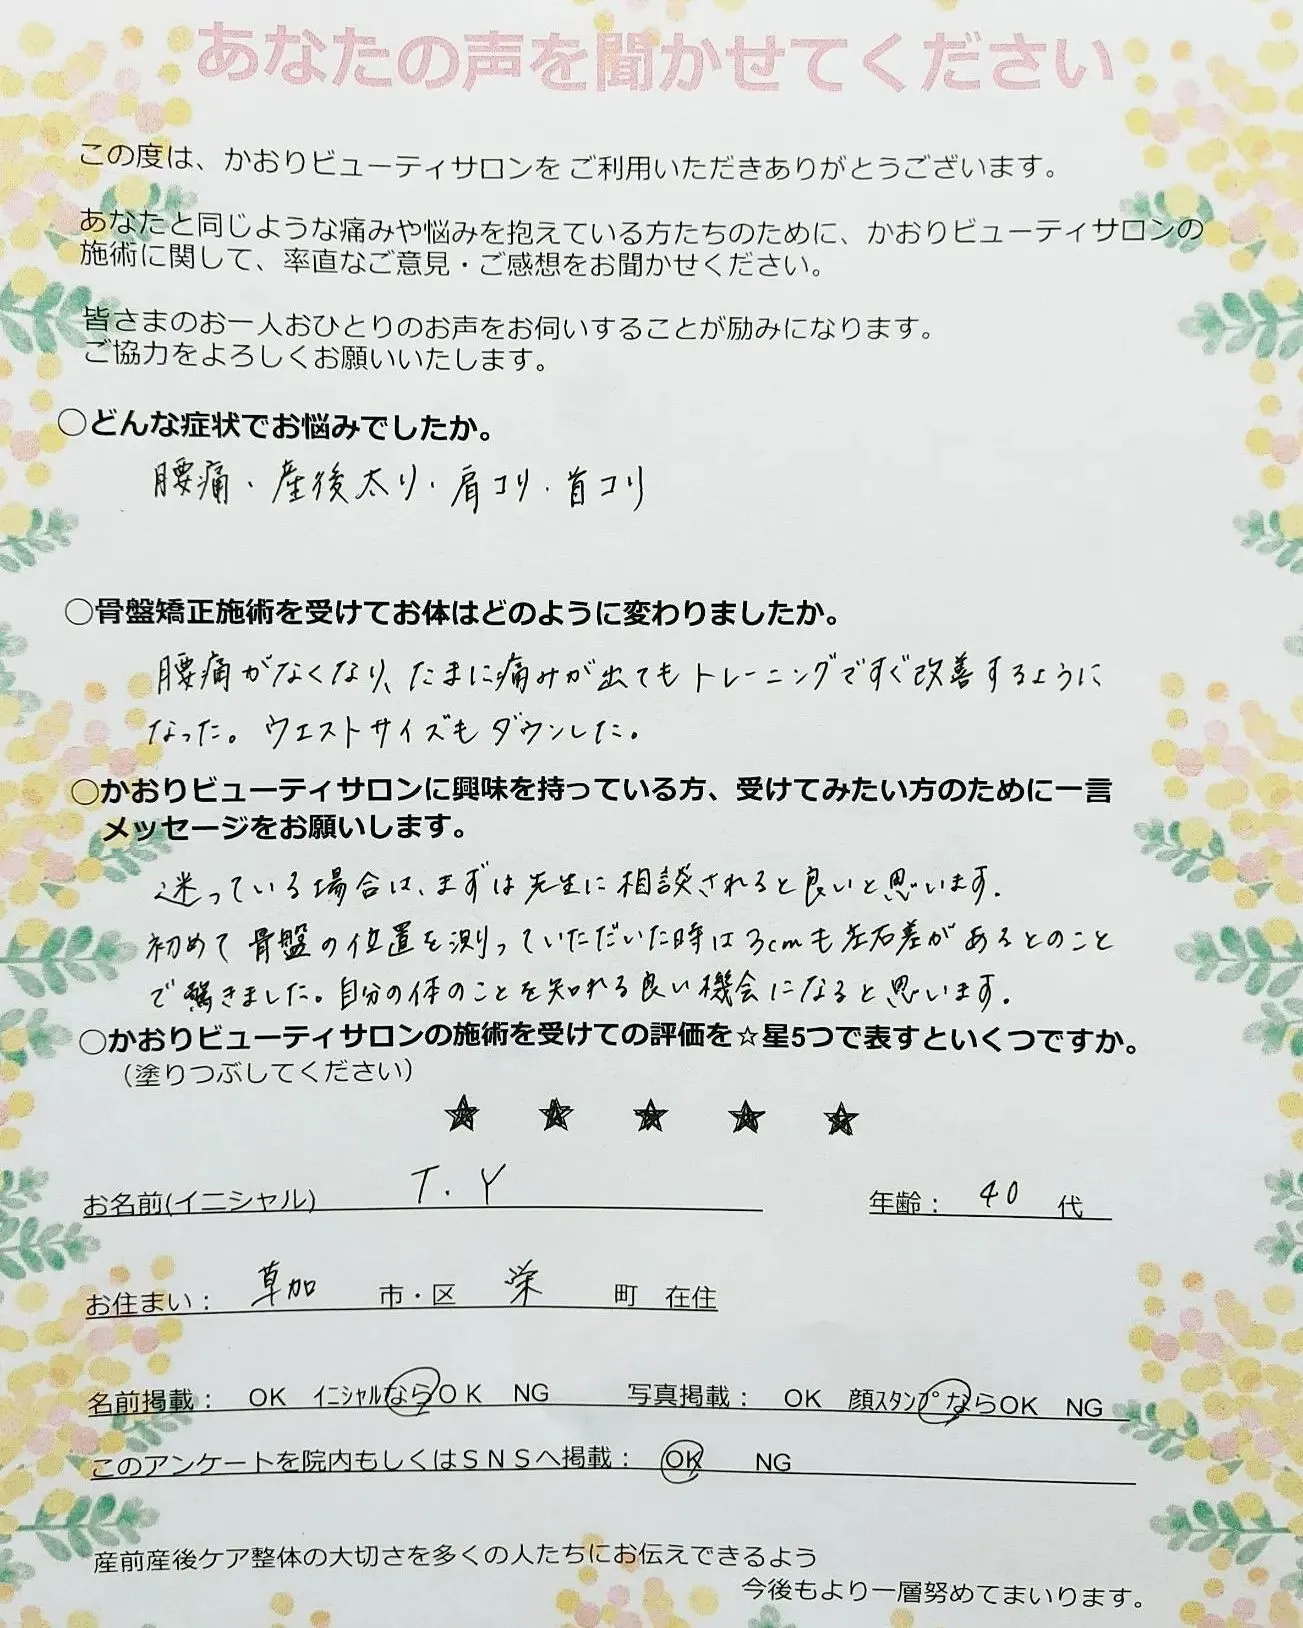 あなたの声を聞かせてください
この度は、かおりビューティサロンを ご利用いただきありがとうございます。
あなたと同じような痛みや悩みを抱えている方たちのために、かおりビューティサロンの
施術に関して、率直なご意見・ご感想をお聞かせください。
皆さまのお一人おひとりのお声をお伺いすることが励みになります。
ご協力をよろしくお願いいたします。
○どんな症状でお悩みでしたか。
腰痛・産後太り・肩コリ・首コリ
○骨盤矯正施術を受けてお体はどのように変わりましたか。
腰痛がなくなり、たまに痛みが出てもトレーニングですぐ改善するように
なった。ウエストサイズもダウンした。
○かおりビューティサロンに興味を持っている方、受けてみたい方のために一言
メッセージをお願いします。
迷っている場合は、まずは先生に相談されると良いと思います。
初めて骨盤の位置を測っていただいた時は3cmも左右差があるとのこと
で驚きました。自分の体のことを知れる良い機会になると思います。
○かおりビューティサロンの施術を受けての評価を☆星5つで表すといくつですか。
（塗りつぶしてください）
★ ★ ★ ★ ★
お名前(イニシャル) T.Y 年齢： 40 代
お住まい： 草加 市・区 栄 町 在住
名前掲載： OK イニシャルならOK NG 写真掲載： OK 顔スタンプならOK NG
このアンケートを院内もしくはSNSへ掲載： OK NG
産前産後ケア整体の大切さを多くの人たちにお伝えできるよう
今後もより一層努めてまいります。